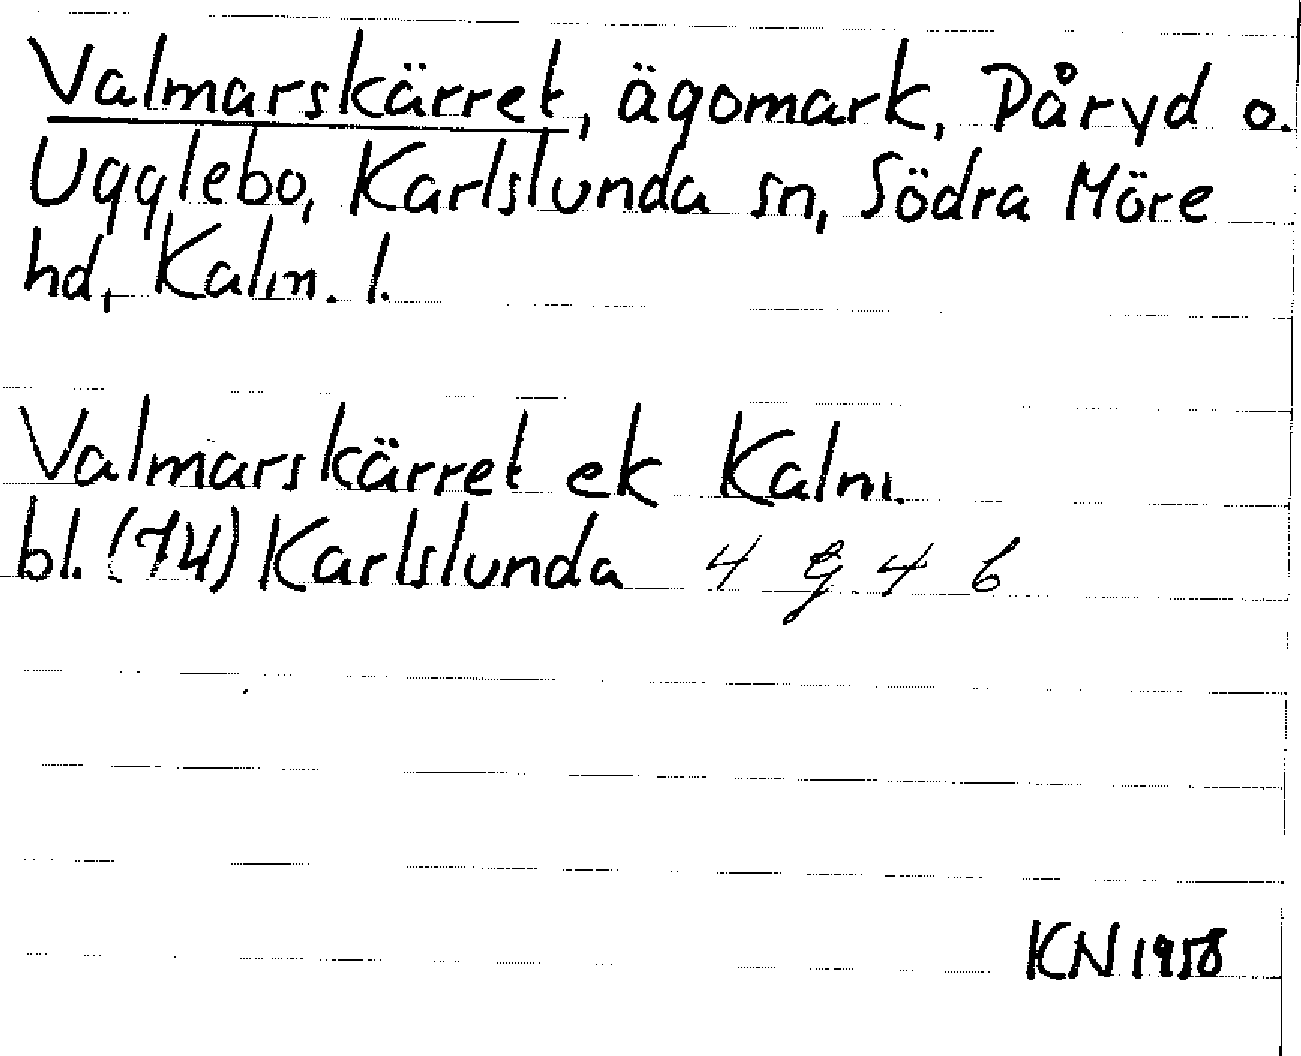 Valmarskärret, ägomark, Påryd o.
Ugglebo, Karlslunda sn, Södra Möre
hd, Kalm. l.
Valmarskärret ek Kalm.
bl. (74) Karlslunda 4 g 4 b
KN 1958